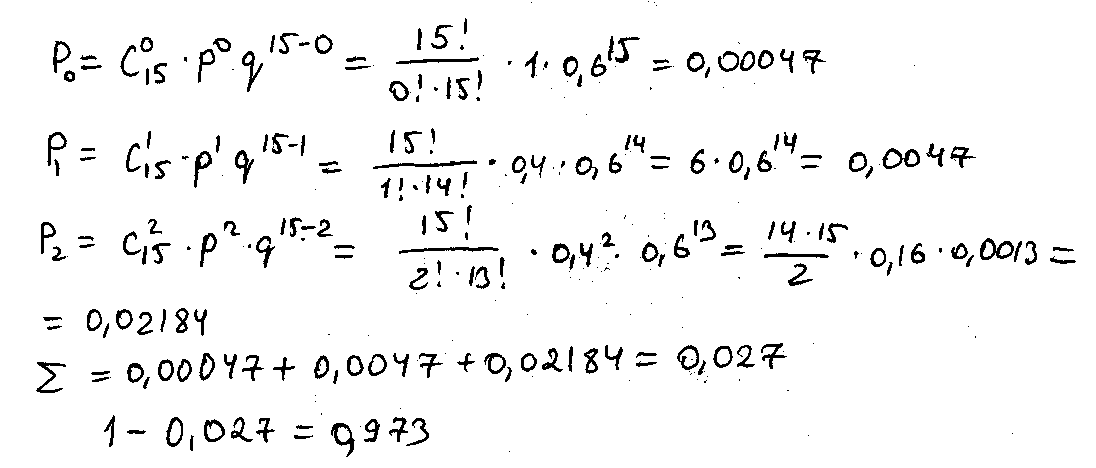 P₀ = C₁₅⁰ · p⁰ q¹⁵⁻⁰ = 15! / (0! · 15!) · 1 · 0,6¹⁵ = 0,00047
P₁ = C₁₅¹ · p¹ q¹⁵⁻¹ = 15! / (1! · 14!) · 0,4 · 0,6¹⁴ = 6 · 0,6¹⁴ = 0,0047
P₂ = C₁₅² · p² · q¹⁵⁻² = 15! / (2! · 13!) · 0,4² · 0,6¹³ = 14 · 15 / 2 · 0,16 · 0,0013 =
= 0,02184
Σ = 0,00047 + 0,0047 + 0,02184 = 0,027
1 - 0,027 = 0,973